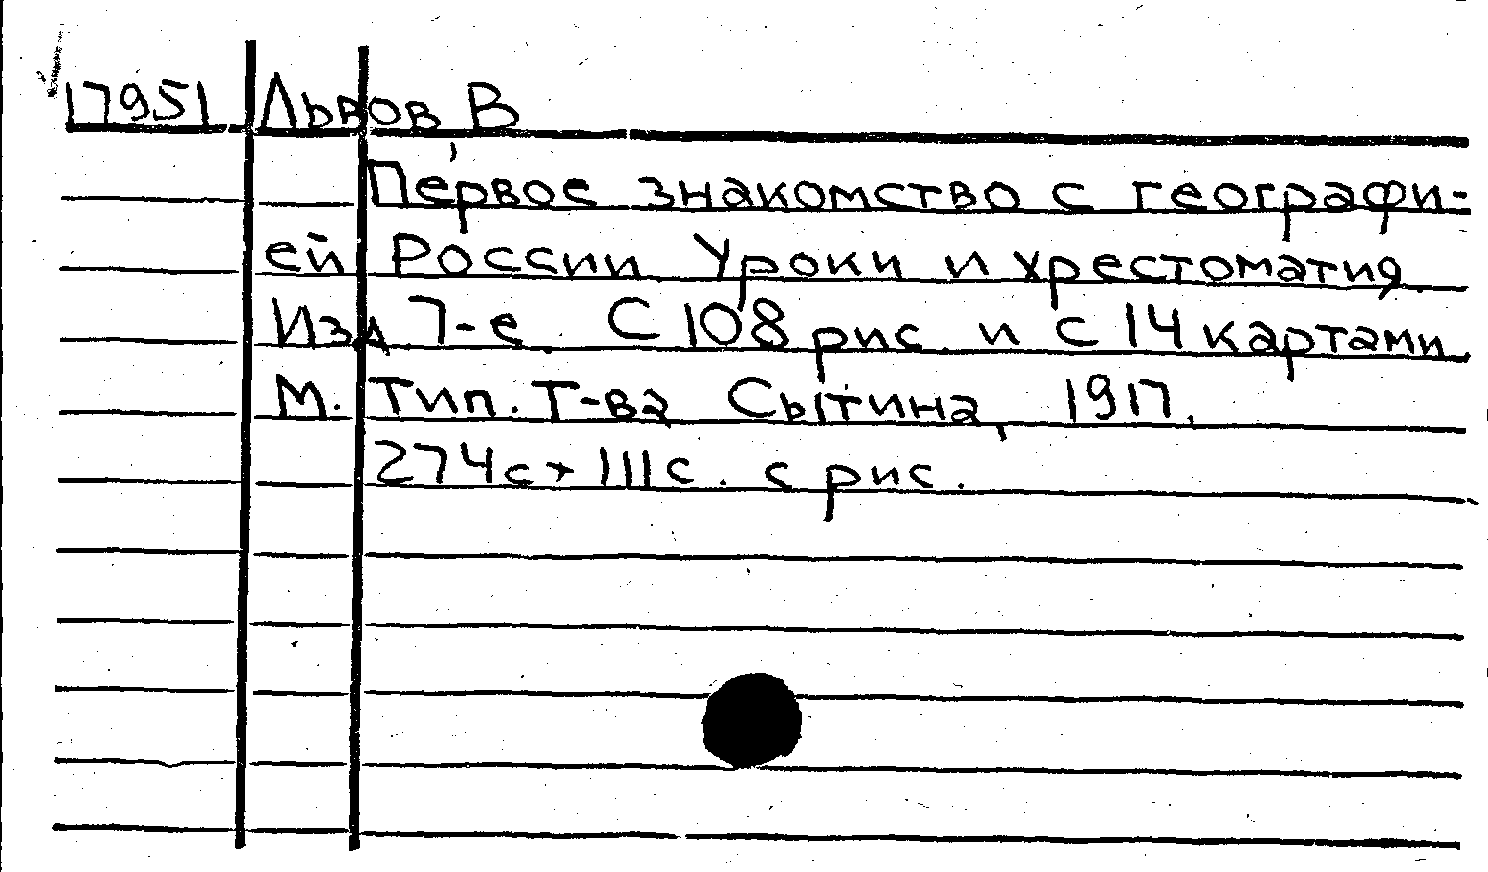 17951 Львов В
Первое знакомство с географи-
ей России Уроки и хрестоматия
Изд 7-е. С 108 рис. и с 14 картами
М. Тип. Т-ва Сытина, 1917.
274с + IIIс. с рис.